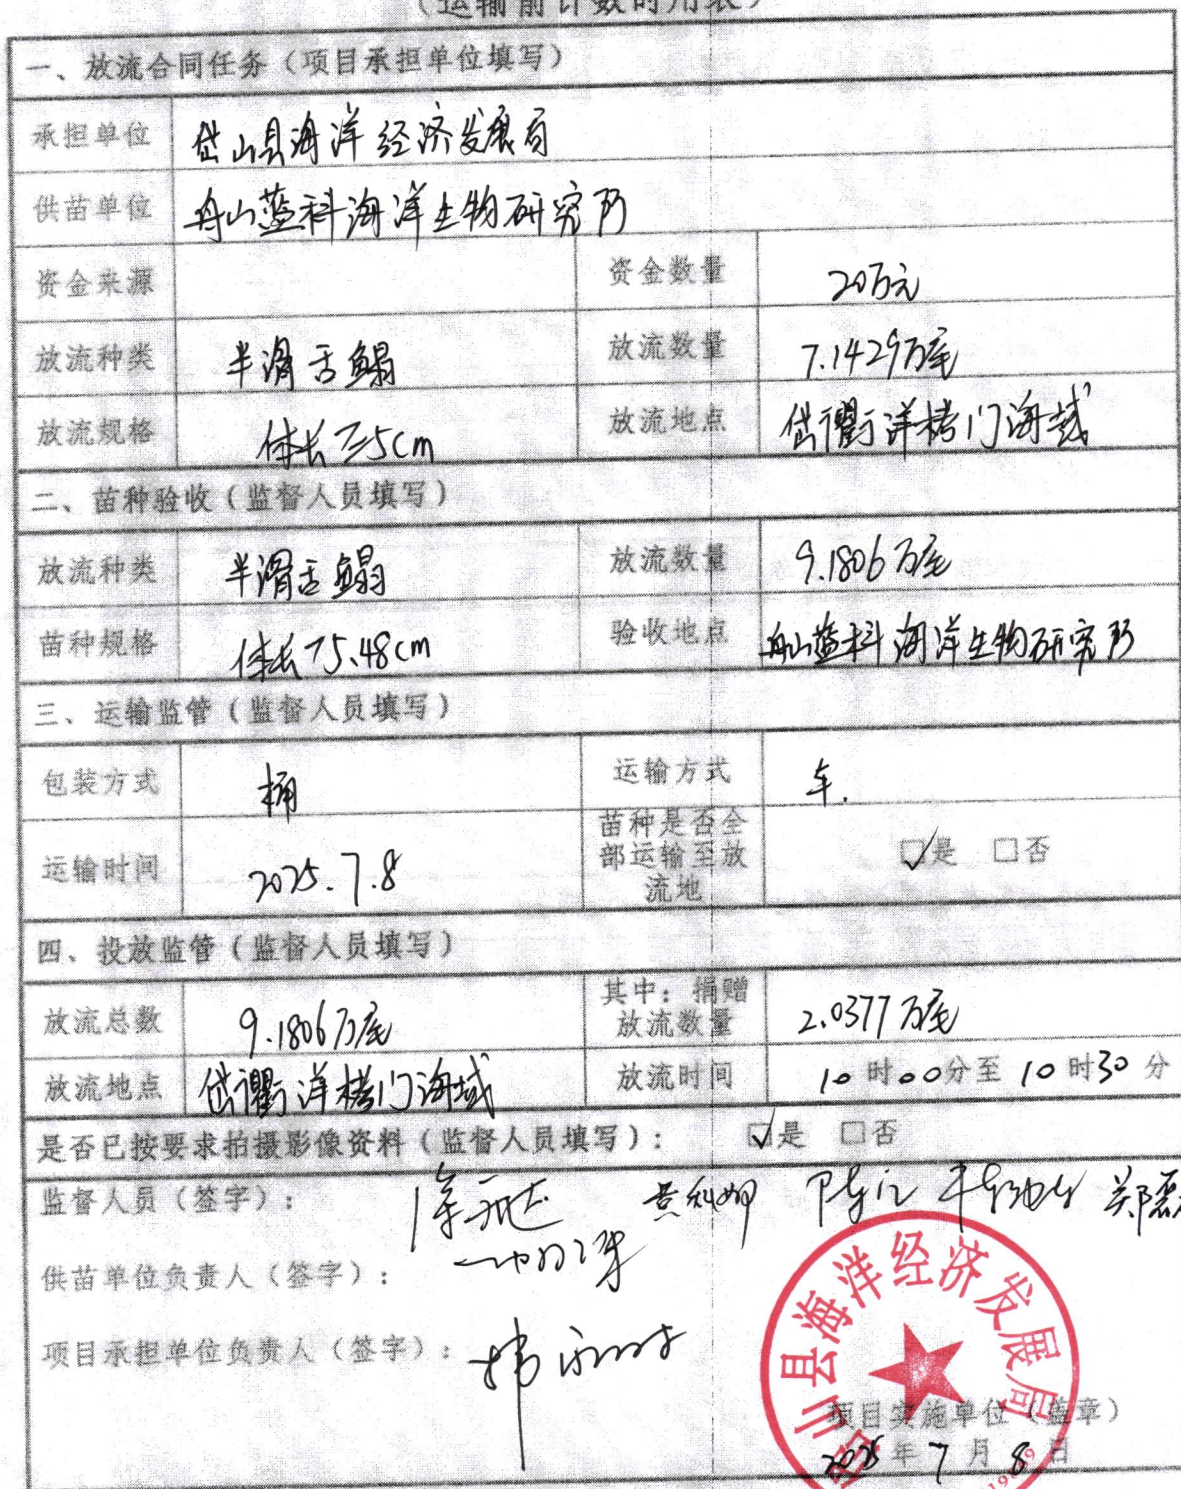 （运输前计数时用表）
一、放流合同任务（项目承担单位填写）
承担单位 岱山县海洋经济发展局
供苗单位 舟山蓝科海洋生物研究所
资金来源 资金数量 20万元
放流种类 半滑舌鳎 放流数量 7.1429万尾
放流规格 体长≥5cm 放流地点 岱衢洋栲门海域
二、苗种验收（监督人员填写）
放流种类 半滑舌鳎 放流数量 9.1806万尾
苗种规格 体长75.48cm 验收地点 舟山蓝科海洋生物研究所
三、运输监管（监督人员填写）
包装方式 桶 运输方式 车.
运输时间 2025.7.8 苗种是否全部运输至放流地 ☑是 □否
四、投放监管（监督人员填写）
放流总数 9.1806万尾 其中：捐赠放流数量 2.0377万尾
放流地点 岱衢洋栲门海域 放流时间 10时00分至10时30分
是否已按要求拍摄影像资料（监督人员填写）： ☑是 □否
监督人员（签字）：
供苗单位负责人（签字）：
项目承担单位负责人（签字）：
岱山县海洋经济发展局
项目实施单位（盖章）
2025年7月8日